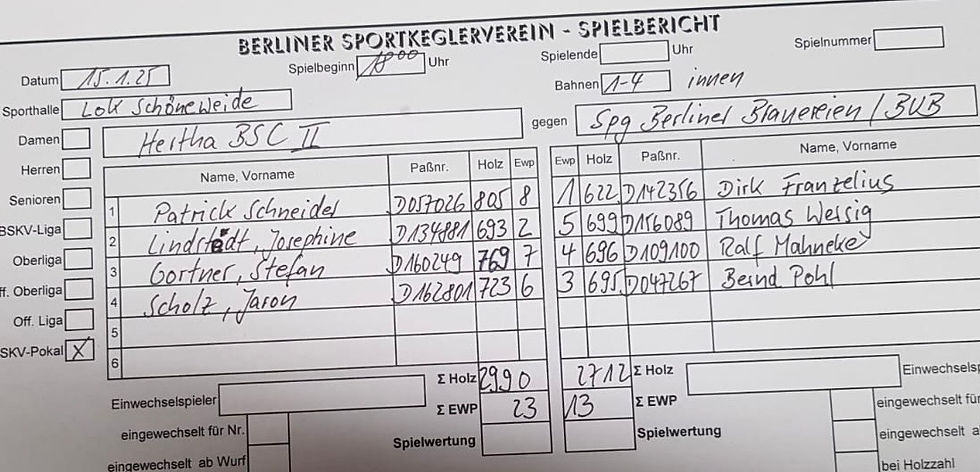 BERLINER SPORTKEGLERVEREIN - SPIELBERICHT
Datum 15.1.25 Spielbeginn 18⁰⁰ Uhr Spielende Uhr Spielnummer
Sporthalle Lok Schöneweide Bahnen 1-4 innen
Damen Hertha BSC II gegen Spg Berliner Brauereien / BVB
Herren Name, Vorname Paßnr. Holz Ewp Ewp Holz Paßnr. Name, Vorname
Senioren 1 Patrick Schneider D057026 805 8 1 622 D142356 Dirk Franzelius
BSKV-Liga 2 Lindstedt, Josephine D134881 693 2 5 699 D156089 Thomas Wersig
Oberliga 3 Gortner, Stefan D160249 769 7 4 696 D109100 Ralf Mahneke
ff. Oberliga 4 Scholz, Jaron D162801 723 6 3 695 D047267 Bernd Pohl
Off. Liga 5
SKV-Pokal X 6
Σ Holz 2990 2712 Σ Holz
Einwechselspieler Einwechselsp
Σ EWP 23 13 Σ EWP
eingewechselt für Nr. eingewechselt für
Spielwertung Spielwertung
eingewechselt ab Wurf eingewechselt a
bei Holzzahl